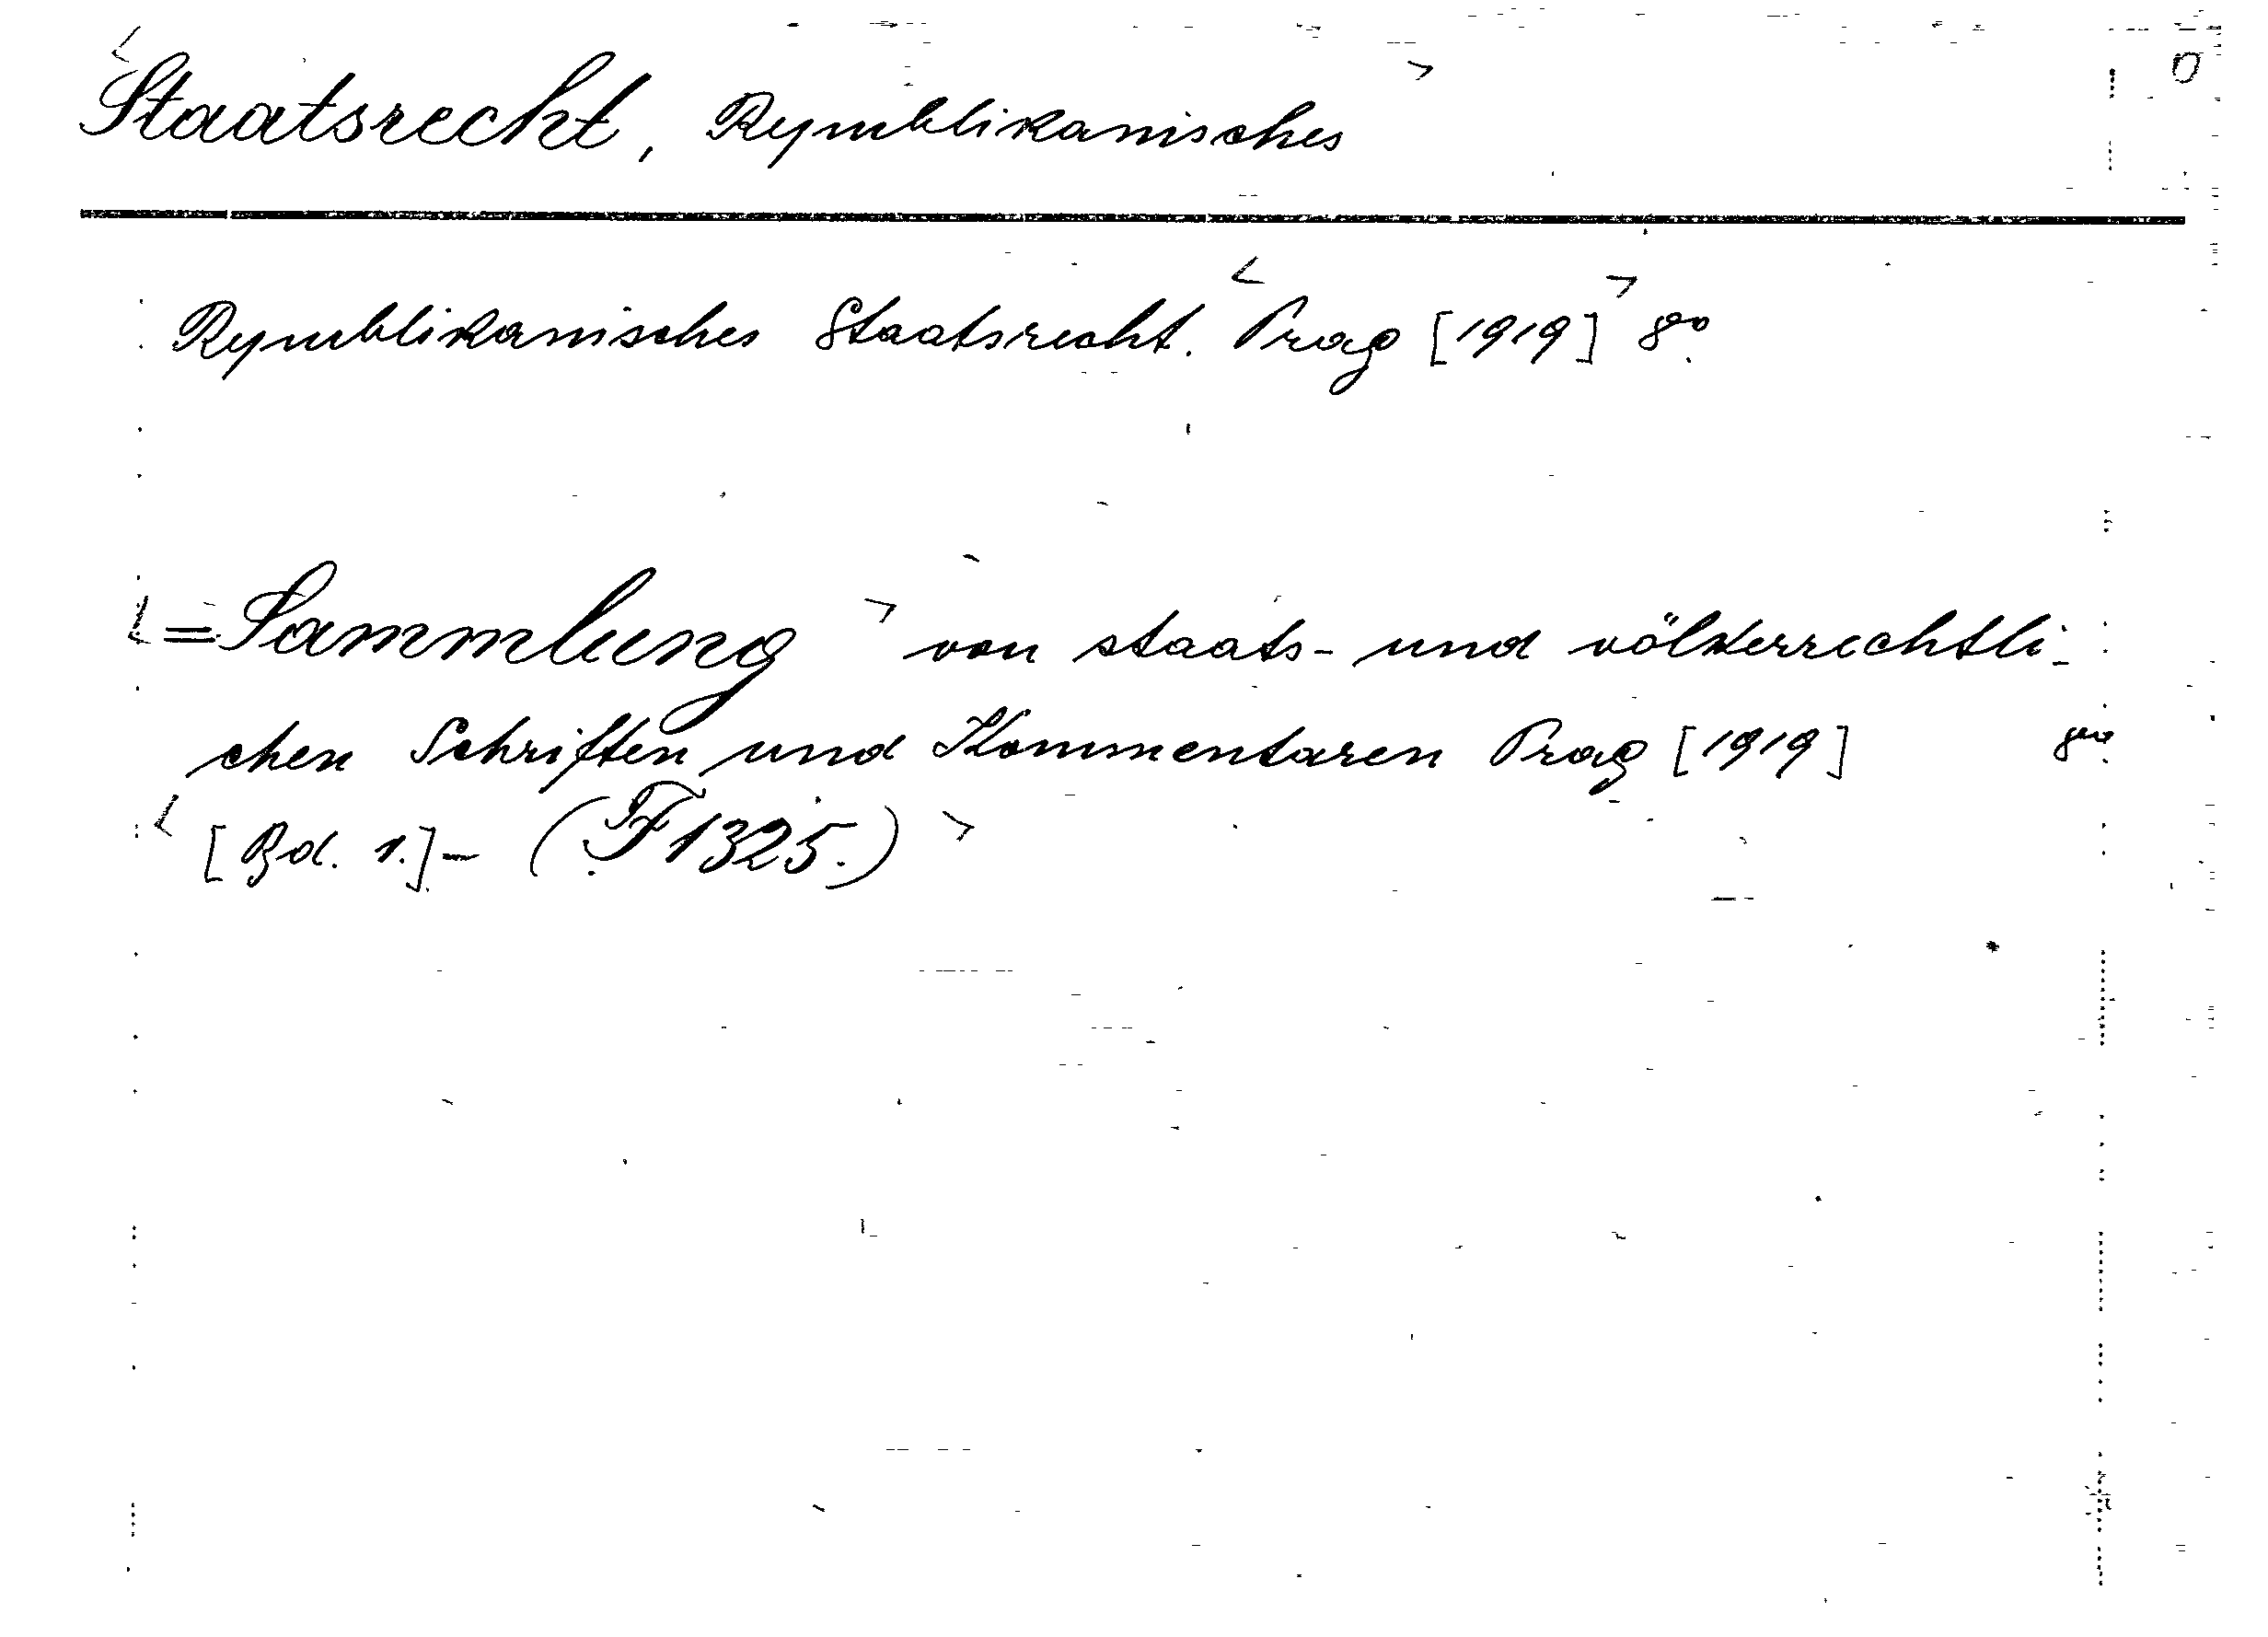 Staatsrecht, Republikanisches
Republikanisches Staatsrecht. Prag [1919] 8º.
=Sammlung von staats- und völkerrechtli-
chen Schriften und Kommentaren Prag [1919] 8vo.
[Bd. 1.]- (F 1325.)